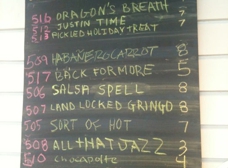 516 DRAGON'S BREATH 7
512 JUSTIN TIME
513 PICKLED HOLIDAY TREAT 8
509 HABAÑERO CARROT 8
517 BRICK FOR MORE 5
506 SALSA SPELL 8
507 LAND LOCKED GRINGO 8
505 SORT OF HOT 7
508 ALL THAT JAZZ 3
510 chocapolte 4